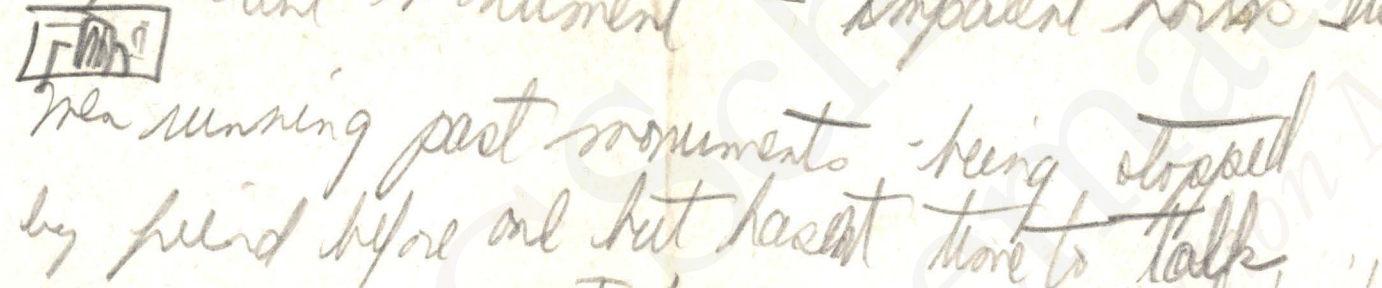 monument - impatient horses
Men running past monuments - being stopped
by freind before one but hasent time to talk.